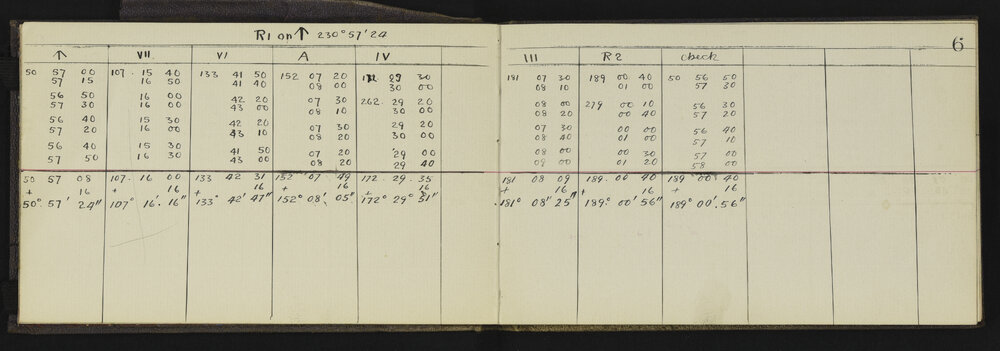 R1 on ↑ 230° 57' 24
6
↑ VII VI A IV III R2 check
50 57 00 107 . 15 40 133 41 50 152 07 20 172 29 30 181 07 30 189 00 40 50 56 50
57 15 16 50 41 40 08 00 30 00 08 10 01 00 57 30
56 50 16 00 42 20 07 30 262 . 29 20 08 00 279 00 10 56 30
57 30 16 00 43 00 08 10 30 00 08 20 00 40 57 20
56 40 15 30 42 20 07 30 29 20 07 30 00 00 56 40
57 20 16 00 43 10 08 20 30 00 08 40 01 00 57 10
56 40 15 30 41 50 07 20 29 00 08 00 00 30 57 00
57 50 16 30 43 00 08 20 29 40 09 00 01 20 58 00
50 57 08 107 . 16 00 133 42 31 152 07 . 49 172 . 29 . 35 181 08 09 189 . 00 . 40 189 00 40
+ 16 + 16 + 16 + 16 + 16 + 16 + 16 + 16
50° . 57' 24" 107° 16' . 16" 133° 42' 47" 152° 08' . 05" 172° 29° 51" 181° 08" 25" 189° . 00' 56" 189° 00' . 56"